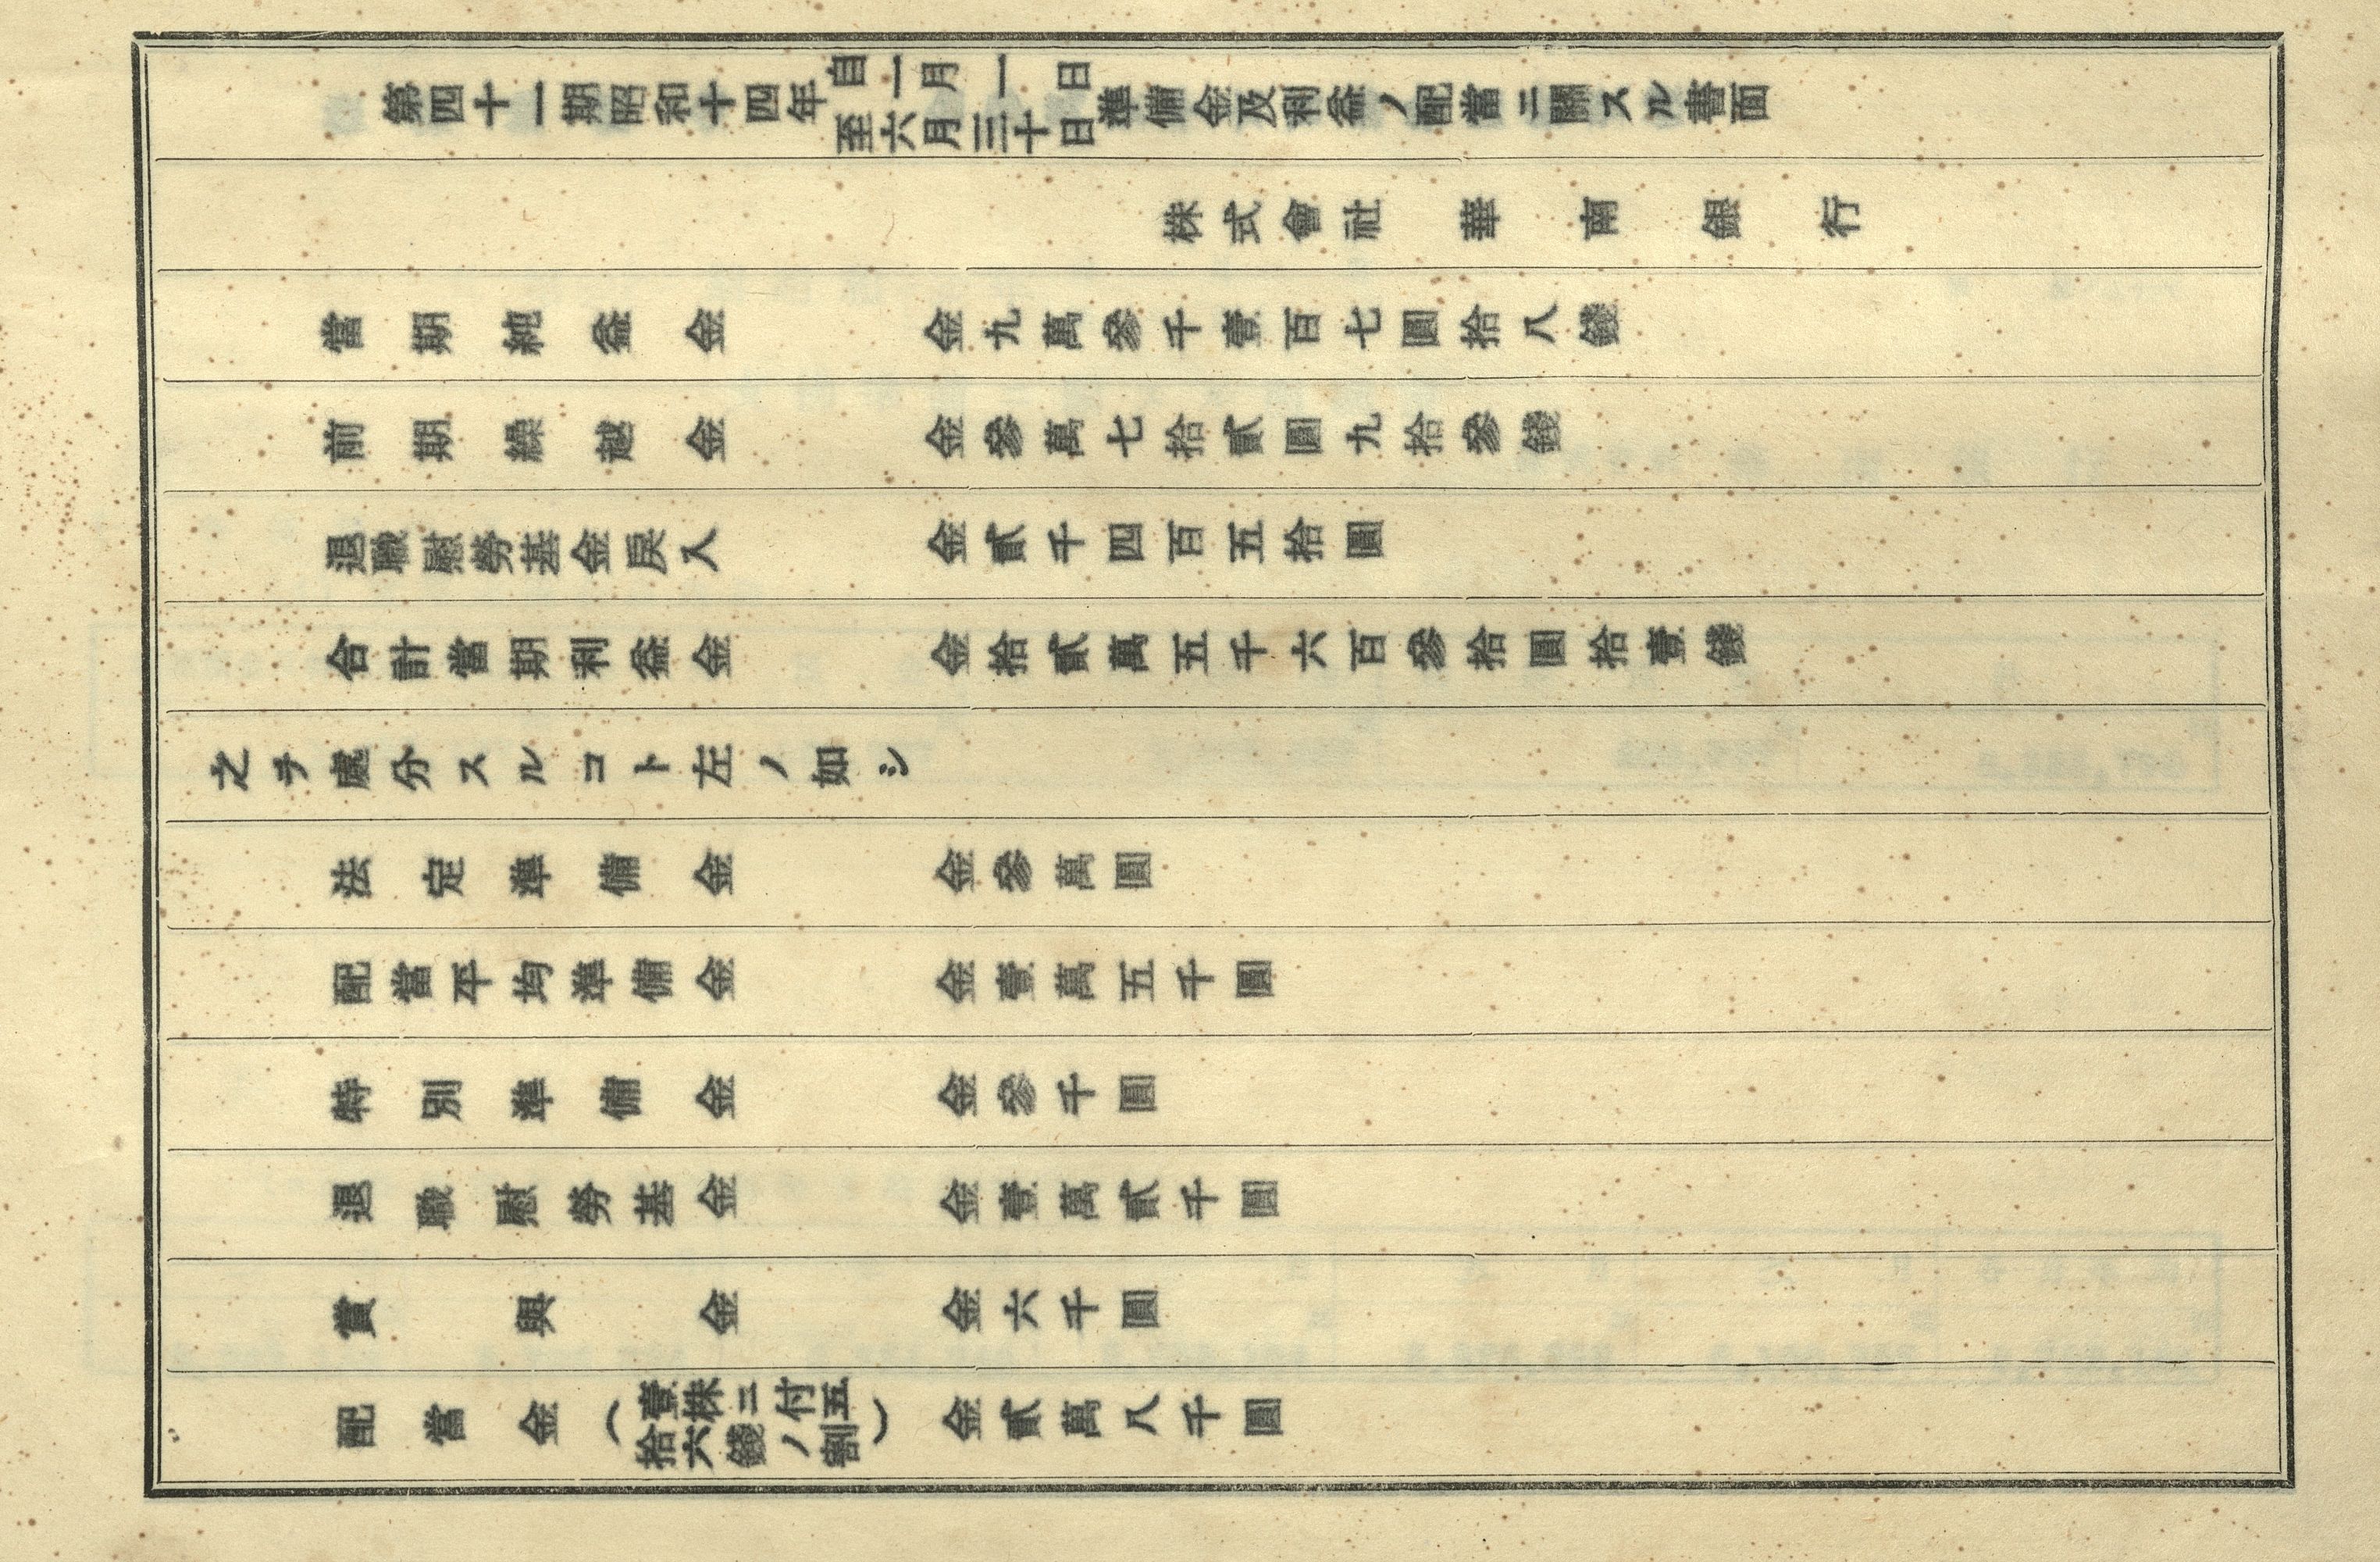 第四十一期昭和十四年自一月一日至六月三十日準備金及利益ノ配當ニ關スル書面
株式會社華南銀行
當期純益金 金九萬參千壹百七圓拾八錢
前期繰越金 金參萬七拾貳圓九拾參錢
退職慰勞基金戾入 金貳千四百五拾圓
合計當期利益金 金拾貳萬五千六百參拾圓拾壹錢
之ヲ處分スルコト左ノ如シ
法定準備金 金參萬圓
配當平均準備金 金壹萬五千圓
特別準備金 金參千圓
退職慰勞基金 金壹萬貳千圓
賞與金 金六千圓
配當金(壹株ニ付五拾六錢ノ割) 金貳萬八千圓